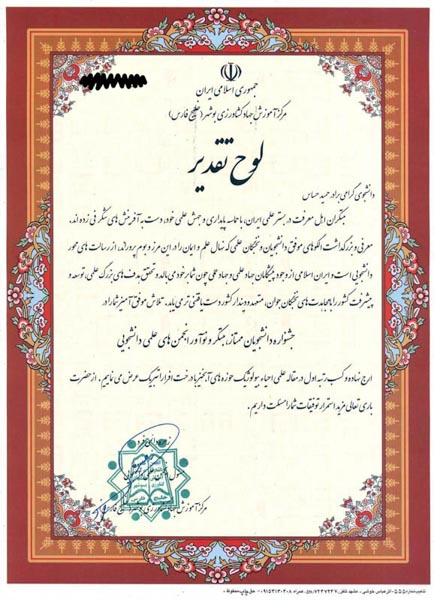 جمهوری اسلامی ایران
مرکز آموزش جهاد کشاورزی بوشهر (خلیج فارس)
لوح تقدیر
دانشجوی گرامی برادر حمید حساس
مبتکران اهل معرفت در بستر علمی ایران، با حماسه پایداری و جنبش علمی خود، دست به آفرینش های شگرفی زده اند،
معرفی و بزرگداشت الگوهای موفق دانشجویان و نخبگان علمی که نهال علم و ایمان را در این مرز و بوم پرورانند، از رسالت های محور
دانشجویی است و ایران اسلامی از وجود پیشگامان جهاد علمی و جهادعلی چون شما بر خود می بالد و تحقق هدف های بزرگ علمی، توسعه و
پیشرفت کشور را با مجاهدت های نخبگان جوان، متعهد و مدار کشور دست یافتنی تر می یابد. تلاش موفق آمیز شما را در
جشنواره دانشجویان ممتاز، مبتکر و نوآور انجمن های علمی دانشجویی
ارج نهاده و کسب رتبه اول در مقاله علمی احیاء بیولوژیک حوزه های آبخیز با درخت اقرا را تبریک عرض می نماییم، از حضرت
باری تعالی مزید استمرار توفیقات شما را مسئلت داریم.
مرکز آموزش جهاد کشاورزی بوشهر خلیج فارس